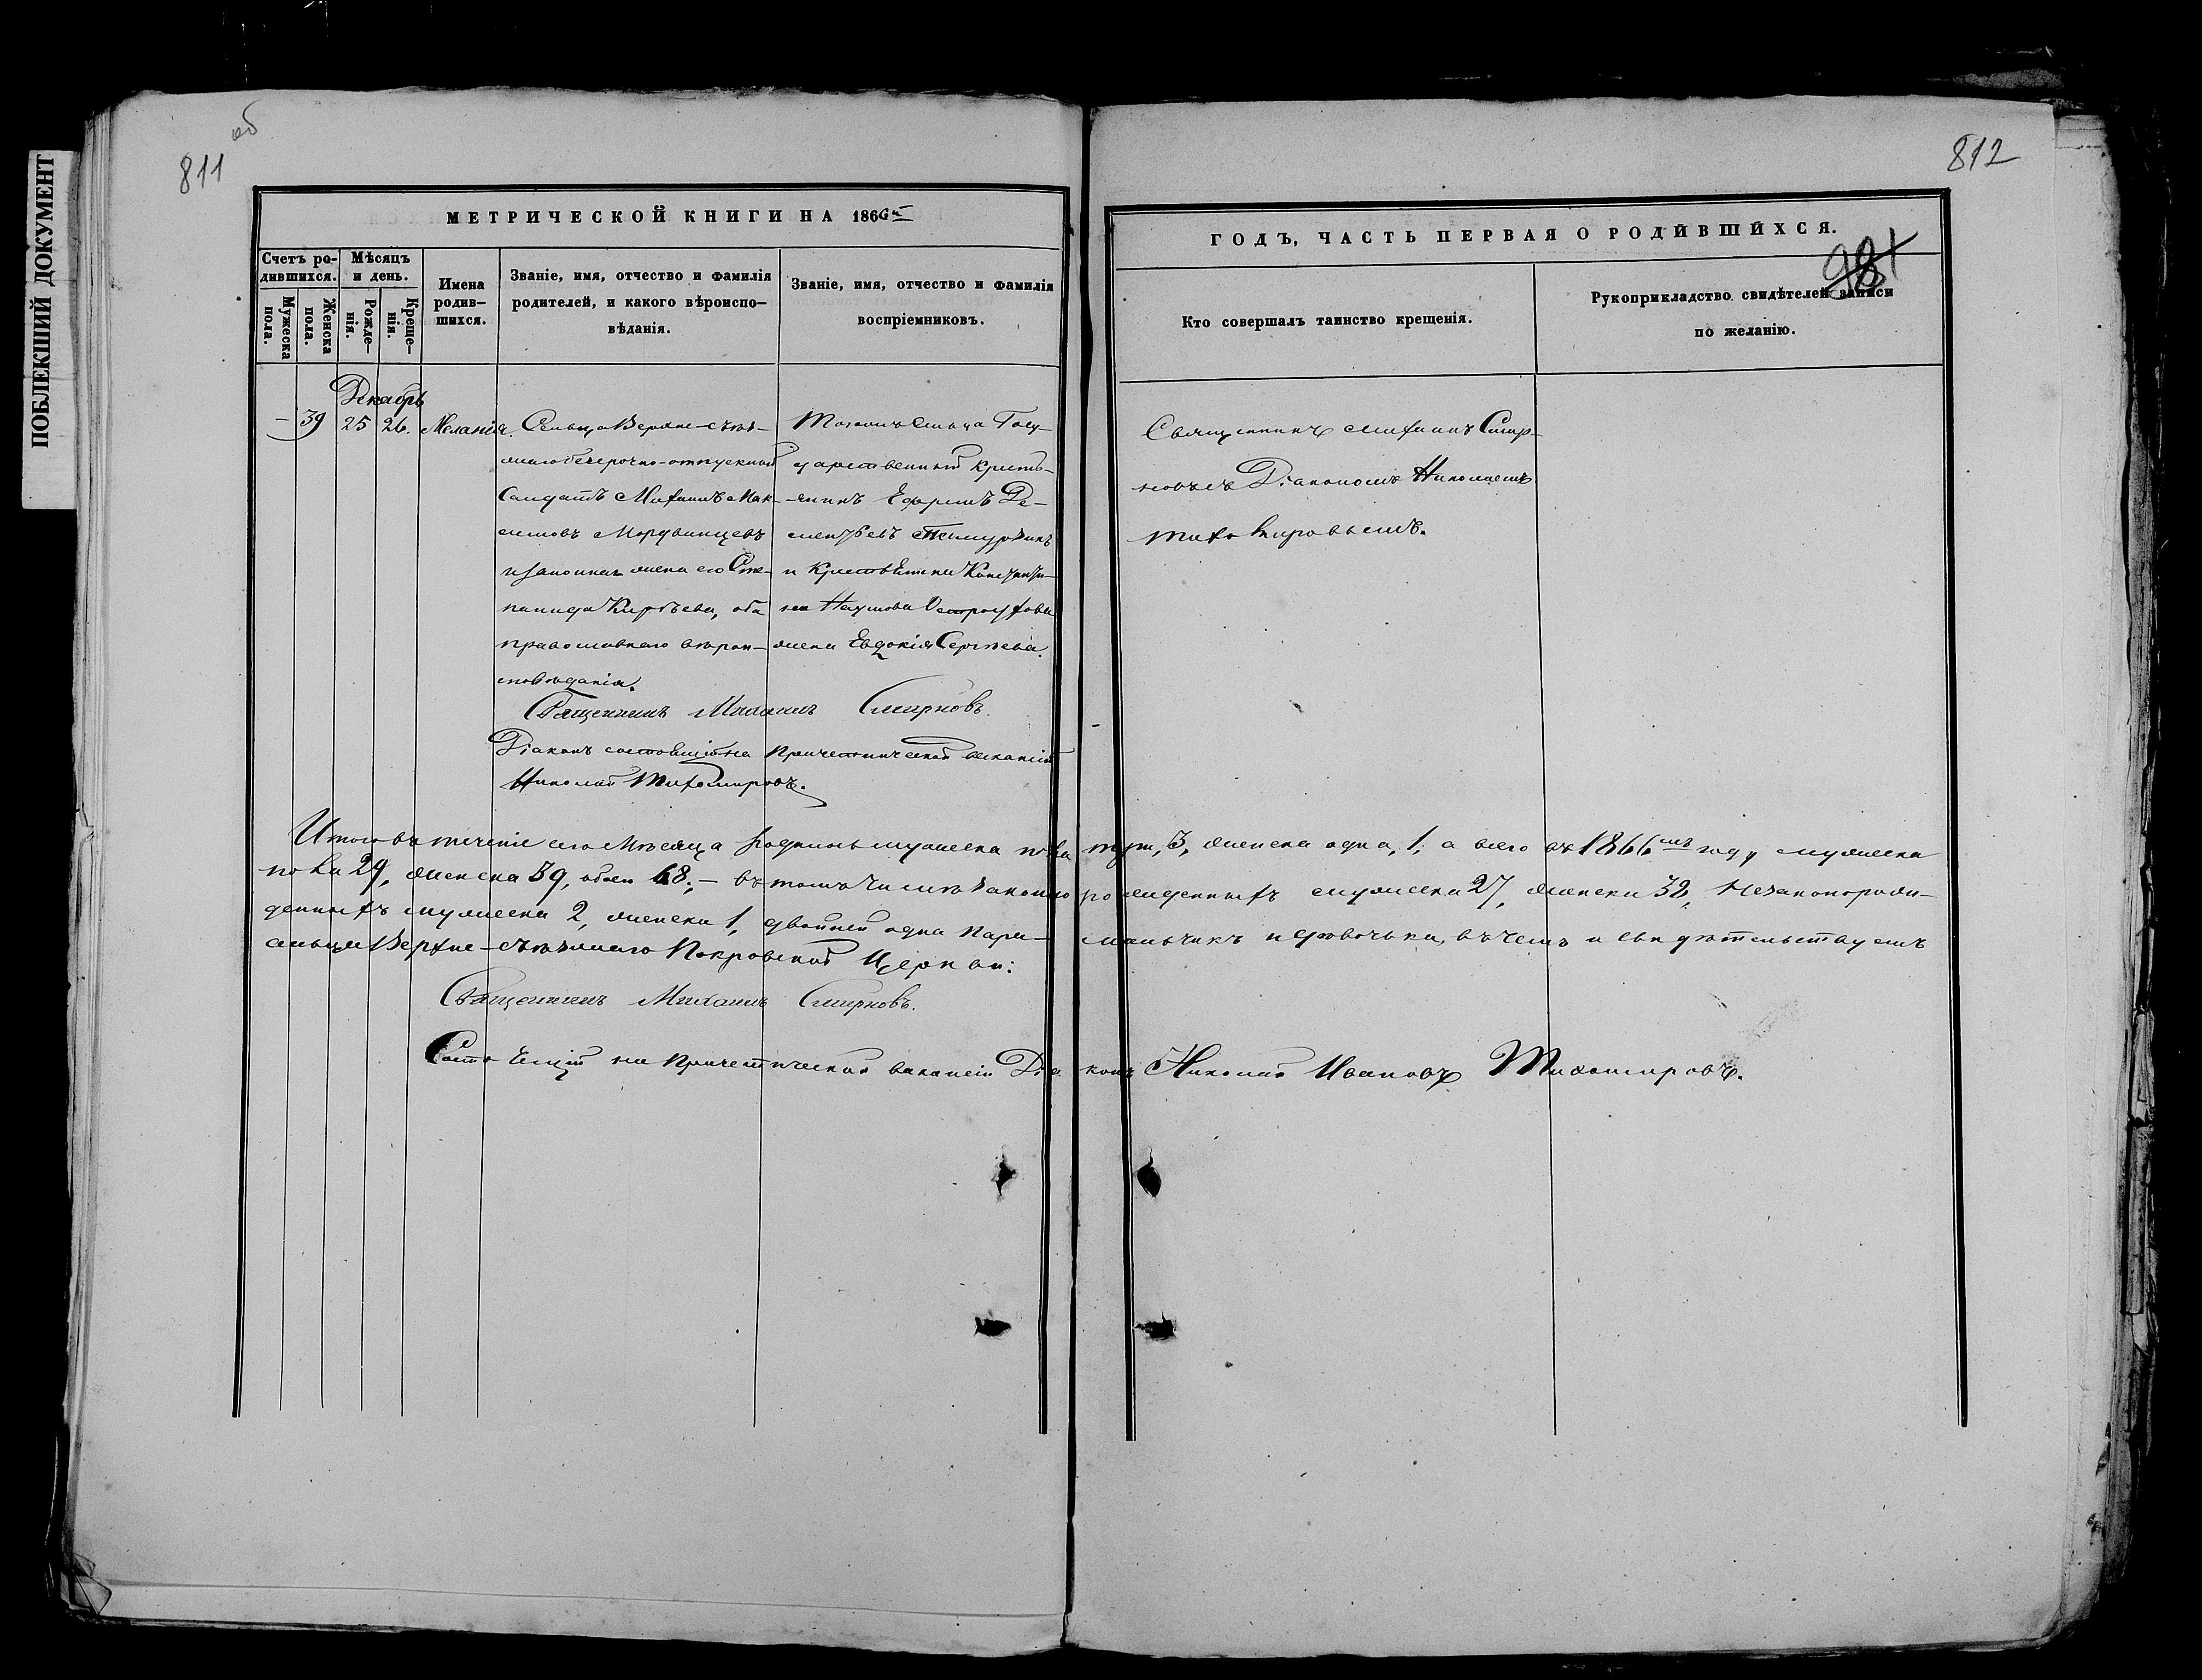 ПОБЛЕКШИЙ ДОКУМЕНТ
об
811
МЕТРИЧЕСКОЙ КНИГИ НА 1866й
Счетъ ро-
дившихся.
Мужеска
пола.
Женска
пола.
Мѣсяцъ
и день.
Рожде-
нія.
Креще-
нія.
Имена
родив-
шихся.
Званіе, имя, отчество и фамилія
родителей, и какого вѣроиспо-
вѣданія.
Званіе, имя, отчество и фамилія
воспріемниковъ.
Декабрь
— 39 25 26. Меланія.
Сельца Верхне-
безсрочно-отпускный
Солдатъ Михаилъ Мак-
симовъ Мордвинцевъ
и законная жена его Сте-
панида Кирѣева, оба
православнаго вѣрои-
сповѣданія.
Тогожъ Сельца Госу-
дарственный кресть-
янинъ Ефремъ Де-
ментьевъ
и Крестьянина Константи-
на Наумова Остроухова
жена Евдокія Сергѣева.
Священникъ Михаилъ Смирновъ.
Діаконъ состоящій на Причетнической вакансіи
Николай Тихомировъ.
812
ГОДЪ, ЧАСТЬ ПЕРВАЯ О РОДИВШИХСЯ.
981
Кто совершалъ таинство крещенія.
Рукоприкладство свидѣтелей записи
по желанію.
Священникъ Михаилъ Смир-
новъ съ Діакономъ Николаемъ
Тихомировымъ.
Итого въ теченіе сего Мѣсяца родилось мужеска пола три, 3, женска одна, 1, а всего въ 1866мъ году мужеска
пола 29, женска 39, обоего 68; — въ томъ числѣ законно рожденныхъ мужеска 27, женска 38, Незаконорож-
денныхъ мужеска 2, женска 1, двойней одна пара — мальчикъ и дѣвочька, въ чемъ и свидѣтельствуемъ
сельца Верхне- Покровской Церкви:
Священникъ Михаилъ Смирновъ.
Состоящій на Причетнической вакансіи Діаконъ Николай Ивановъ Тихомировъ.